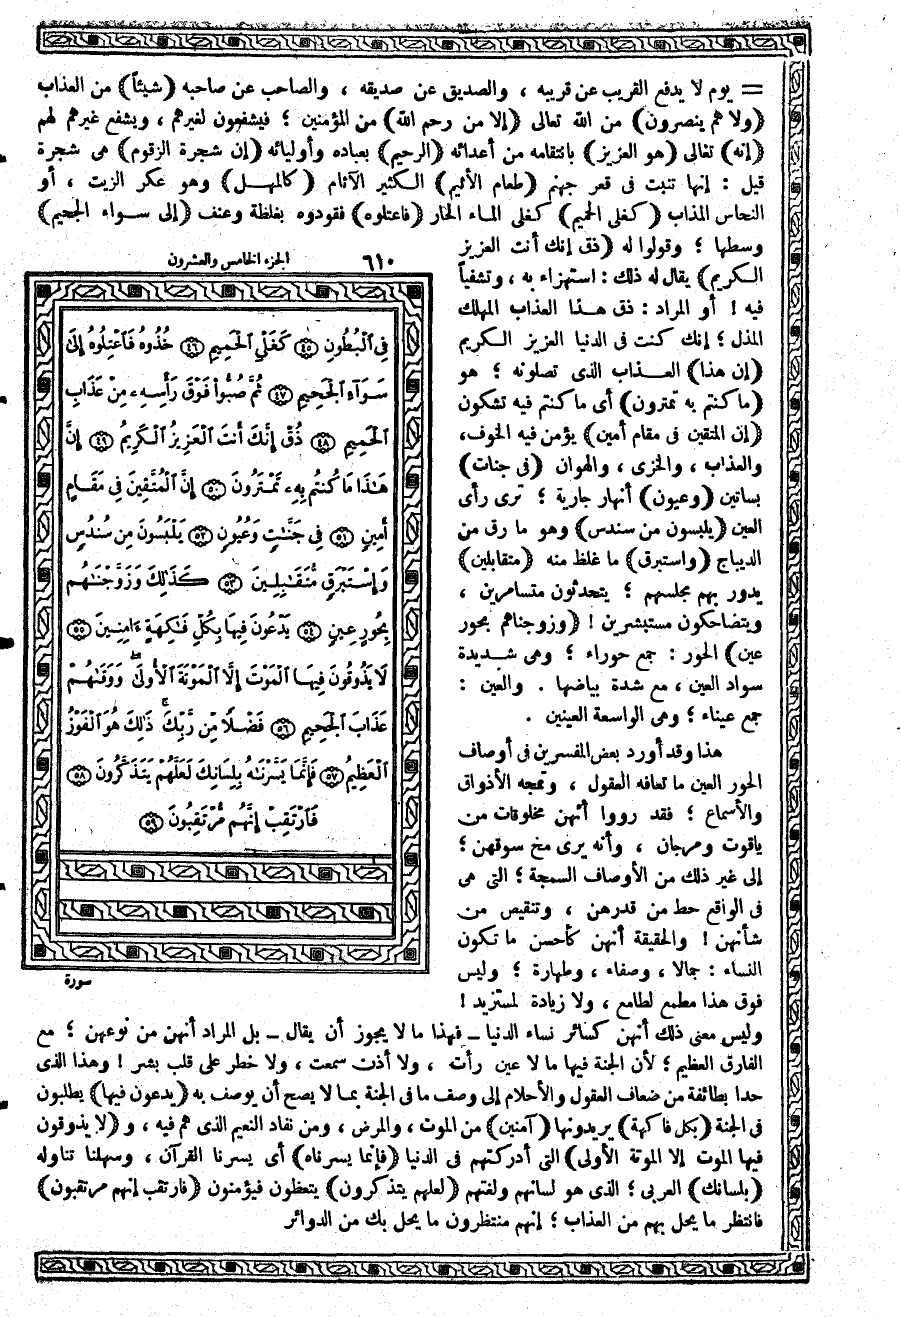 = يوم لا يدفع القريب عن قريبه ، والصديق عن صديقه ، والصاحب عن صاحبه (شيئاً) من العذاب
(ولا هم ينصرون) من الله تعالى (إلا من رحم الله) من المؤمنين ؛ فيشفعون لغيرهم ، ويشفع غيرهم لهم
(إنه) تعالى (هو العزيز) بانتقامه من أعدائه (الرحيم) بعباده وأوليائه (إن شجرة الزقوم) هى شجرة
قيل : إنها تنبت فى قعر جهنم (طعام الأثيم) الكثير الآثام (كالمهـل) وهو عكر الزيت ، أو
النحاس المذاب (كغلى الحميم) كغلى المـاء الحار (فاعتلوه) فقودوه بغلظة وعنف (إلى سـواء الجحيم)
وسطها ؛ وقولوا له (ذق إنك أنت العزيز
الكريم) يقال له ذلك : استهزاء به ، وتشفياً
فيه ! أو المراد : ذق هـذا العذاب المهلك
المذل ؛ إنك كنت فى الدنيا العزيز الـكريم
(إن هذا) العـذاب الذى تصلونه ؛ هو
(ما كنتم به تمترون) أى ما كنتم فيه تشكون
(إن المتقين فى مقام أمين) يؤمن فيه الخوف،
والعذاب ، والخزى ، والهوان (فى جنات)
بساتين (وعيون) أنهار جارية ؛ ترى رأى
العين (يلبسون من سندس) وهو ما رق من
الديباج (واستبرق) ما غلظ منه (متقابلين)
يدور بهم مجلسهم ؛ يتحدثون متسامرين ،
ويتضاحكون مستبشرين ! (وزوجناهم بحور
عين) الحور : جمع حوراء ؛ وهى شـديدة
سواد العين ، مع شدة بياضها . والعين :
جمع عيناء ؛ وهى الواسعة العينين .
هذا وقد أورد بعض المفسرين فى أوصاف
الحور العين ما تعافه العقول ، وتمجه الأذواق
والأسماع ؛ فقد رووا أنهن مخلوقات من
ياقوت ومرجان ، وأنه يرى مخ سوقهن ؛
إلى غير ذلك من الأوصاف السمجة ؛ التى هى
فى الواقع حط من قدرهن ، وتنقيص من
شأنهن ! والحقيقة أنهن كأحسن ما تكون
النساء : جمالا ، وصفاء ، وطهارة ؛ وليس
فوق هذا مطمع لطامع ، ولا زيادة لمستزيد !
وليس معنى ذلك أنهن كسائر نساء الدنيا ـ فهذا ما لا يجوز أن يقال ـ بل المراد أنهن من نوعهن ؛ مع
الفارق العظيم ؛ لأن الجنة فيها ما لا عين رأت ، ولا أذن سمعت ، ولا خطر على قلب بشر ! وهذا الذى
حدا بطائفة من ضعاف العقول والأحلام إلى وصف ما فى الجنة بمـا لا يصح أن يوصف به (يدعون فيها) يطلبون
فى الجنة (بكل فاكهة) يريدونها (آمنين) من الموت ، والمرض ، ومن نفاد النعيم الذى هم فيه ، و (لا يذوقون
فيها الموت إلا الموتة الأولى) التى أدركتهم فى الدنيا (فإنما يسرناه) أى يسرنا القرآن ، وسهلنا تناوله
(بلسانك) العربى ؛ الذى هو لسانهم ولغتهم (لعلهم يتذكرون) يتعظون فيؤمنون (فارتقب إنهم مرتقبون)
فانتظر ما يحل بهم من العذاب ؛ إنهم منتظرون ما يحل بك من الدوائر
٦١٠ الجزء الخامس والعشرون
فِى ٱلْبُطُونِ ٤٥ كَغَلْىِ ٱلْحَمِيمِ ٤٦ خُذُوهُ فَٱعْتِلُوهُ إِلَىٰ
سَوَآءِ ٱلْجَحِيمِ ٤٧ ثُمَّ صُبُّوا۟ فَوْقَ رَأْسِهِۦ مِنْ عَذَابِ
ٱلْحَمِيمِ ٤٨ ذُقْ إِنَّكَ أَنتَ ٱلْعَزِيزُ ٱلْكَرِيمُ ٤٩ إِنَّ
هَـٰذَا مَا كُنتُم بِهِۦ تَمْتَرُونَ ٥٠ إِنَّ ٱلْمُتَّقِينَ فِى مَقَامٍ
أَمِينٍ ٥١ فِى جَنَّـٰتٍ وَعُيُونٍ ٥٢ يَلْبَسُونَ مِن سُندُسٍ
وَإِسْتَبْرَقٍ مُّتَقَـٰبِلِينَ ٥٣ كَذَٰلِكَ وَزَوَّجْنَـٰهُم
بِحُورٍ عِينٍ ٥٤ يَدْعُونَ فِيهَا بِكُلِّ فَـٰكِهَةٍ ءَامِنِينَ ٥٥
لَا يَذُوقُونَ فِيهَا ٱلْمَوْتَ إِلَّا ٱلْمَوْتَةَ ٱلْأُولَىٰ ۖ وَوَقَىٰهُمْ
عَذَابَ ٱلْجَحِيمِ ٥٦ فَضْلًا مِّن رَّبِّكَ ۚ ذَٰلِكَ هُوَ ٱلْفَوْزُ
ٱلْعَظِيمُ ٥٧ فَإِنَّمَا يَسَّرْنَـٰهُ بِلِسَانِكَ لَعَلَّهُمْ يَتَذَكَّرُونَ ٥٨
فَٱرْتَقِبْ إِنَّهُم مُّرْتَقِبُونَ ٥٩
سورة